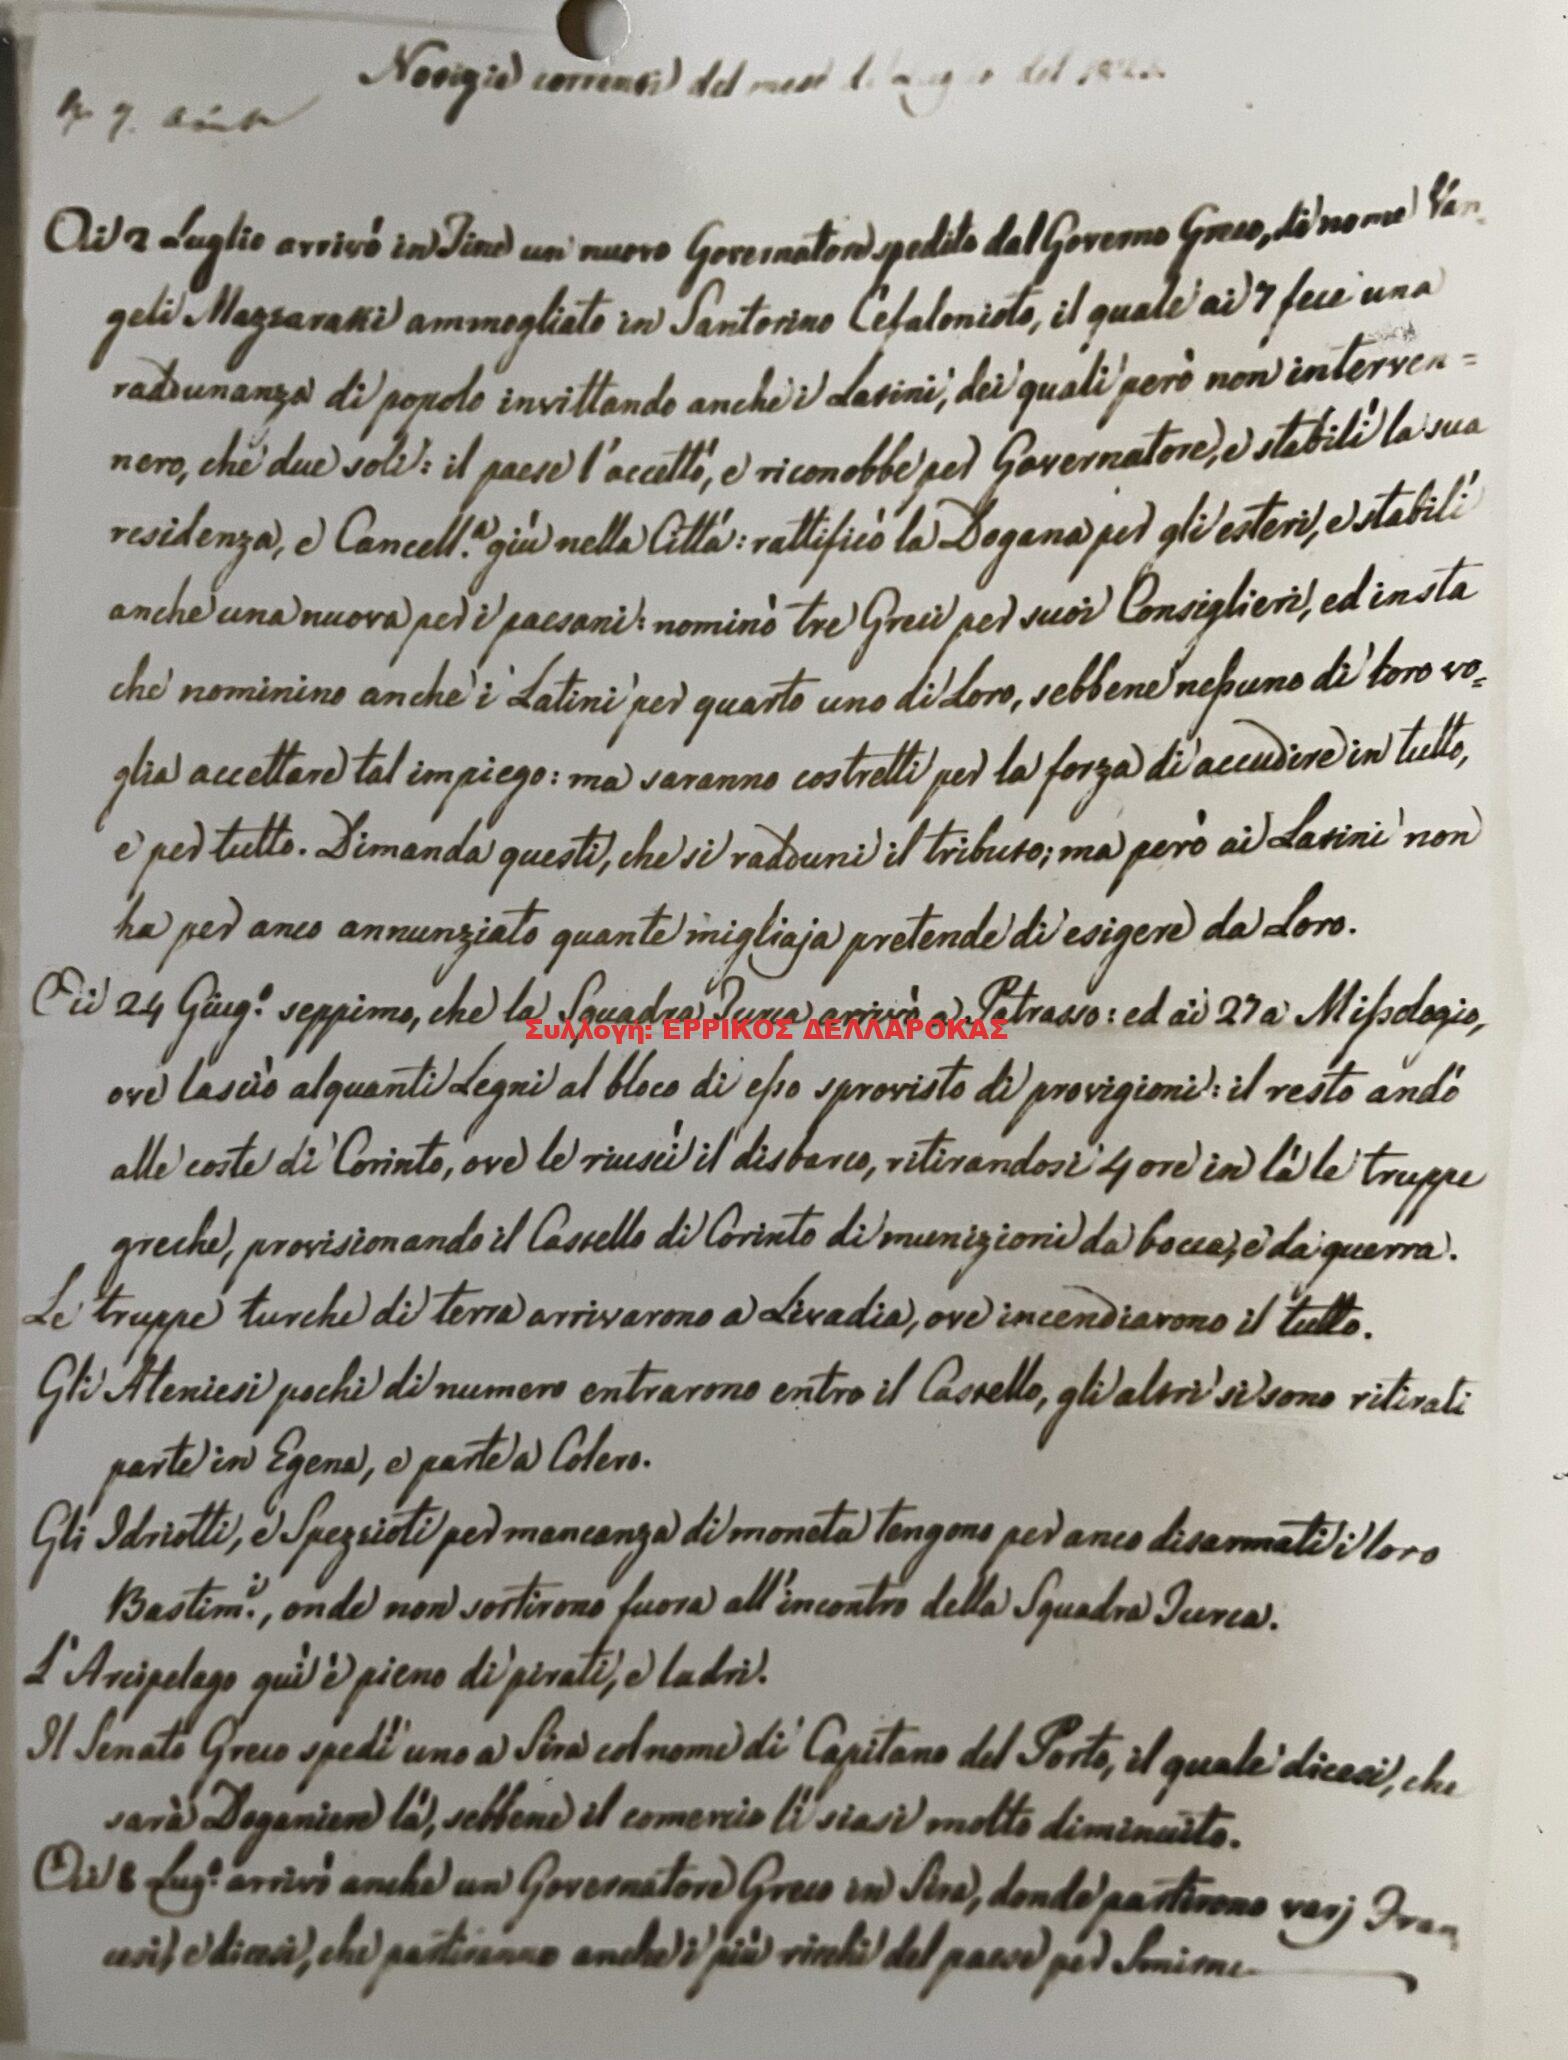 Notizie correnti del mese di Luglio del
Ai 2 Luglio arrivò in Tine un nuovo Governatore spedito dal Governo Greco, di nome Van
geli Mazzaraki ammogliato in Santorino Cefalonioto, il quale ai 7 fece una
raddunanza di popolo invittando anche i Latini, dei quali però non interven=
nero, che due soli: il paese l'accettò, e riconobbe per Governatore, e stabilì la sua
residenza, e Cancell.ª giù nella Città: rattificò la Dogana per gli esteri, e stabilì
anche una nuova per i paesani: nominò tre Greci per suoi Consiglieri, ed insta
che nominino anche i Latini per quarto uno di Loro, sebbene nessuno di loro vo=
glia accettare tal impiego: ma saranno costretti per la forza di accudire in tutto,
e per tutto. Dimanda questi, che si radduni il tributo; ma però ai Latini non
ha per anco annunziato quante migliaja pretende di esigere da Loro.
Ai 24 Giug.º seppimo, che la Squadra Turca arrivò a Patrasso: ed ai 27 a Missologio,
Συλλογή: ΕΡΡΙΚΟΣ ΔΕΛΛΑΡΟΚΑΣ
ove lasciò alquanti Legni al bloco di esso sprovisto di provigioni: il resto andò
alle coste di Corinto, ove le riuscì il disbarco, ritirandosi 4 ore in là le truppe
greche, provisionando il Castello di Corinto di munizioni da bocca, e da guerra.
Le truppe turche di terra arrivarono a Livadia, ove incendiarono il tutto.
Gli Ateniesi pochi di numero entrarono entro il Castello, gli altri si sono ritirati
parte in Egena, e parte a Coluro.
Gli Idriotti, e Spezzioti per mancanza di moneta tengono per anco disarmati i loro
Bastim.i, onde non sortirono fuora all'incontro della Squadra Turca.
L'Arcipelago quì è pieno di pirati, e ladri.
Il Senato Greco spedì uno a Sira col nome di Capitano del Porto, il quale dicesi, che
sarà Doganiere là, sebbene il comercio lì siasi molto diminuito.
Ai 8 Lug.º arrivò anche un Governatore Greco in Sira, donde partirono varj Fran
cesi, e dicesi, che partiranno anche i più ricchi del paese per Smirne